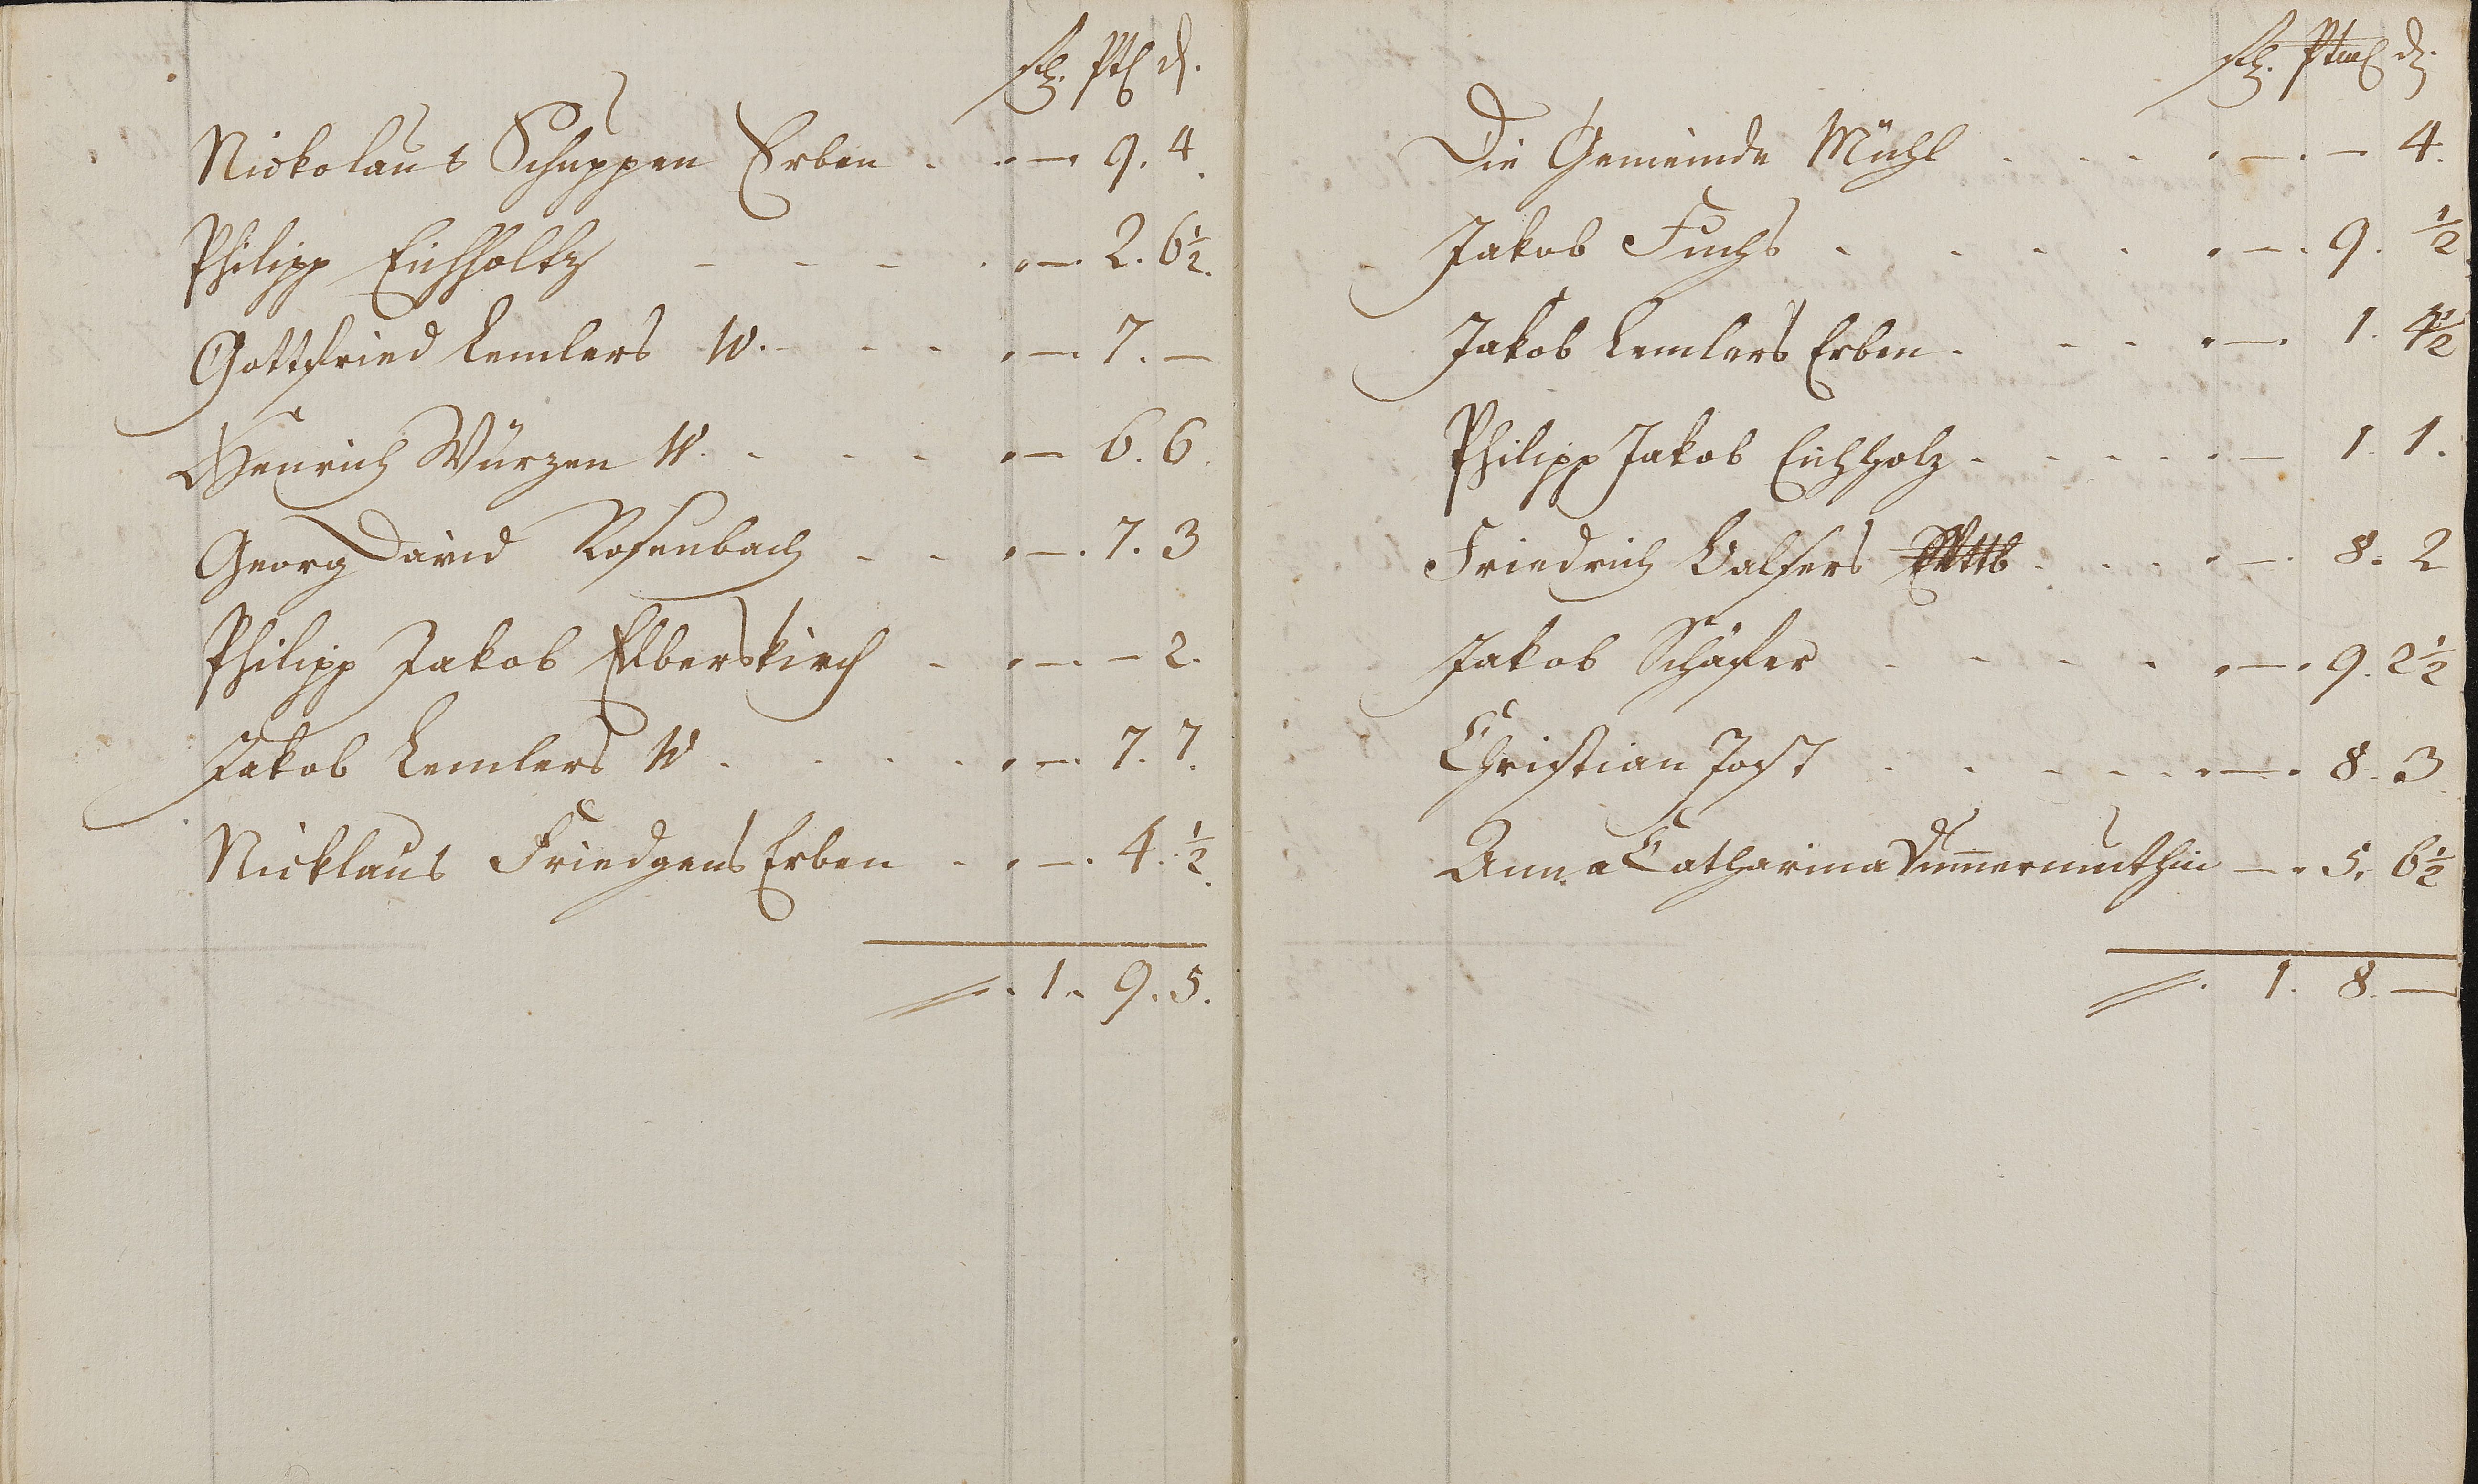 fl. Ptz d.
Nickolaus Schuppen Erben . . — 9. 4.
Philipp Eichholtz - - - . . —. 2. 6½.
Gottfried Lemlers W. - - - . —. 7. —
Henrich Würzen W. - - - . — 6. 6.
Georg David Rosenbach - - . —. 7. 3
Philipp Jakob Elberskirch - . —. — 2.
Jakob Lemlers W. . . . . . —. 7. 7.
Nicklaus Friedgens Erben - . —. 4. ½.
1. 9. 5.
fl. d.
Die Gemeinde Mühl - - - . —. — 4.
Jakob Fuchs - - - - . —. 9. ½
Jakob Lemlers Erben. - - - . —. 1. 4½
Philipp Jakob Eichholz. - - - - . — 1. 1.
Friedrich Balsers - - - . —. 8. 2
Jakob Schäfer - - - - . —. 9. 2½
Christian Jost - - - - - . —. 8. 3
Anna Catharina Dummermuthin —. 5. 6½
1. 8. —